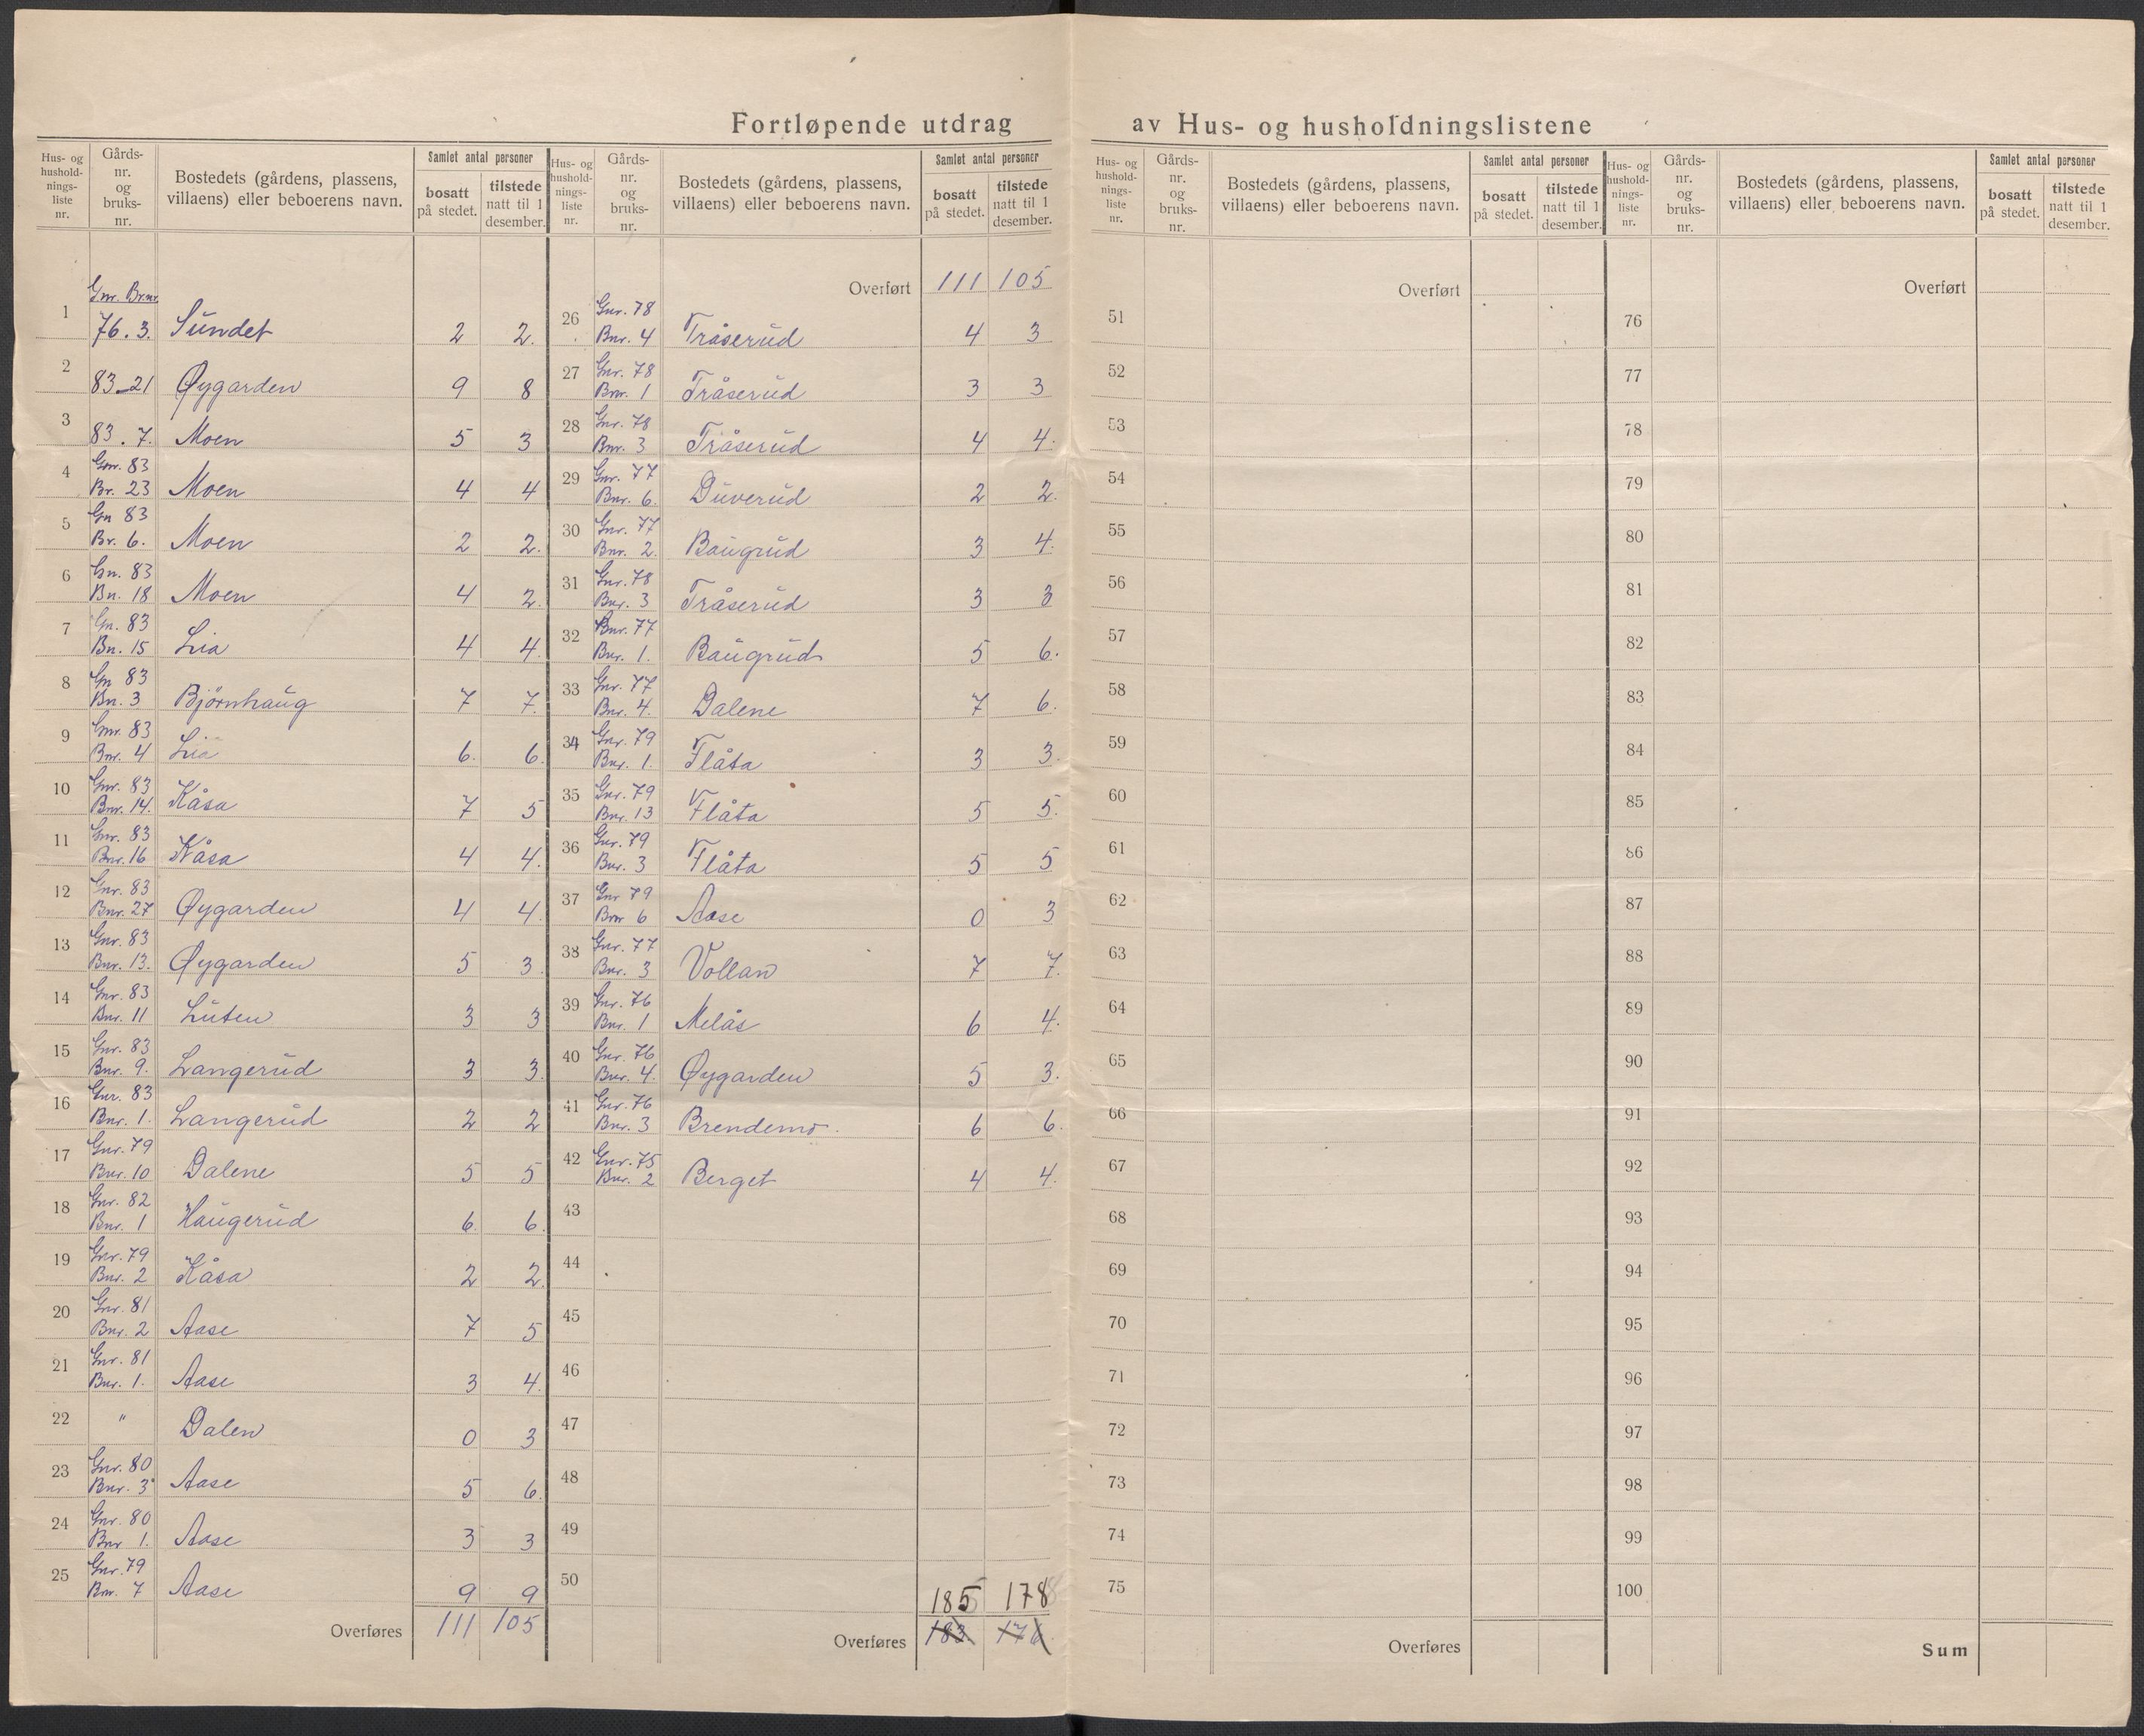 Fortløpende utdrag av Hus- og husholdningslistene
Hus- og hushold-nings-liste nr. | Gårds-nr. og bruks-nr. | Bostedets (gårdens, plassens, villaens) eller beboerens navn. | Samlet antal personer | bosatt på stedet. | tilstede natt til 1 desember.
Gnr. Bnr.
1 76. 3. Sundet 2 2.
2 83-21 Øygarden 9 8
3 83. 7. Moen 5 3
4 Gnr. 83 Br. 23 Moen 4 4
5 Gn 83 Br. 6. Moen 2 2.
6 Gn. 83 Bn. 18 Moen 4 2.
7 Gn. 83 Bn. 15 Lia 4 4.
8 Gn 83 Bn. 3 Bjørnhaug 7 7.
9 Gnr. 83 Bnr. 4 Lia 6. 6.
10 Gnr. 83 Bnr. 14. Kåsa 7 5
11 Gnr. 83 Bnr. 16 Kåsa 4 4.
12 Gnr. 83 Bnr. 27 Øygarden 4 4.
13 Gnr. 83 Bnr. 13. Øygarden 5 3.
14 Gnr. 83 Bnr. 11 Luten 3 3
15 Gnr. 83 Bnr. 9. Langerud 3 3.
16 Gnr. 83 Bnr. 1. Langerud 2 2
17 Gnr. 79 Bnr. 10 Dalene 5 5
18 Gnr. 82 Bnr. 1 Haugerud 6. 6.
19 Gnr. 79 Bnr. 2 Kåsa 2 2.
20 Gnr. 81 Bnr. 2 Aase 7 5
21 Gnr. 81 Bnr. 1. Aase 3 4.
22 " Dalen 0 3
23 Gnr. 80 Bnr. 3 Aase 5 6.
24 Gnr. 80 Bnr 1. Aase 3 3
25 Gnr. 79 Bnr. 7 Aase 9 9
Overføres 111 105
Hus- og hushold-nings-liste nr. | Gårds-nr. og bruks-nr. | Bostedets (gårdens, plassens, villaens) eller beboerens navn. | Samlet antal personer | bosatt på stedet. | tilstede natt til 1 desember.
Overført 111 105
26 Gnr. 78 Bnr. 4 Tråserud 4 3
27 Gnr. 78 Bnr. 1 Tråserud 3 3
28 Gnr. 78 Bnr. 3 Tråserud 4 4.
29 Gnr. 77 Bnr. 6. Duverud 2 2.
30 Gnr. 77 Bnr. 2. Baugrud 3 4.
31 Gnr. 78 Bnr. 3 Tråserud 3 3
32 Bnr. 77 Bnr. 1. Baugrud 5 6.
33 Gnr. 77 Bnr. 4. Dalene 7 6.
34 Gnr. 79 Bnr. 1. Flåta 3 3.
35 Gnr. 79 Bnr. 13 Flåta 5 5.
36 Gnr. 79 Bnr. 3 Flåta 5 5
37 Gnr 79 Bnr 6 Aase 0 3
38 Gnr. 77 Bnr. 3 Vollan 7 7.
39 Gnr. 76 Bnr. 1 Melås 6 4.
40 Gnr. 76 Bnr. 4. Øygarden 5 3.
41 Gnr. 76 Bnr. 3 Brendemo. 6 6.
42 Gnr. 75 Bnr. 2 Berget 4 4.
43
44
45
46
47
48
49
50
185 178
Overføres 183 176
Hus- og hushold-nings-liste nr. | Gårds-nr. og bruks-nr. | Bostedets (gårdens, plassens, villaens) eller beboerens navn. | Samlet antal personer | bosatt på stedet. | tilstede natt til 1 desember.
Overført
51
52
53
54
55
56
57
58
59
60
61
62
63
64
65
66
67
68
69
70
71
72
73
74
75
Overføres
Hus- og hushold-nings-liste nr. | Gårds-nr. og bruks-nr. | Bostedets (gårdens, plassens, villaens) eller beboerens navn. | Samlet antal personer | bosatt på stedet. | tilstede natt til 1 desember.
Overført
76
77
78
79
80
81
82
83
84
85
86
87
88
89
90
91
92
93
94
95
96
97
98
99
100
Sum